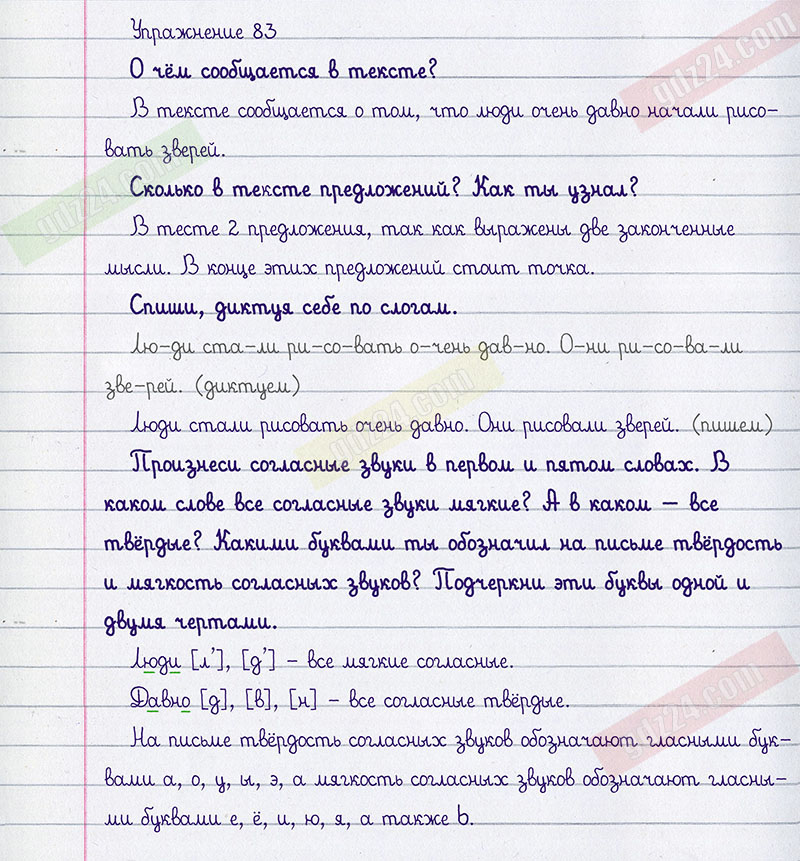 Упражнение 83
О чём сообщается в тексте?
В тексте сообщается о том, что люди очень давно начали рисо-
вать зверей.
Сколько в тексте предложений? Как ты узнал?
В тесте 2 предложения, так как выражены две законченные
мысли. В конце этих предложений стоит точка.
Спиши, диктуя себе по слогам.
Лю-ди ста-ли ри-со-вать о-чень дав-но. О-ни ри-со-ва-ли
зве-рей. (диктуем)
Люди стали рисовать очень давно. Они рисовали зверей. (пишем)
Произнеси согласные звуки в первом и пятом словах. В
каком слове все согласные звуки мягкие? А в каком – все
твёрдые? Какими буквами ты обозначил на письме твёрдость
и мягкость согласных звуков? Подчеркни эти буквы одной и
двумя чертами.
Люди [л’], [д’] – все мягкие согласные.
Давно [д], [в], [н] – все согласные твёрдые.
На письме твёрдость согласных звуков обозначают гласными бук-
вами а, о, у, ы, э, а мягкость согласных звуков обозначают гласны-
ми буквами е, ё, и, ю, я, а также ь.
gdz24.com
gdz24.com
gdz24.com
gdz24.com